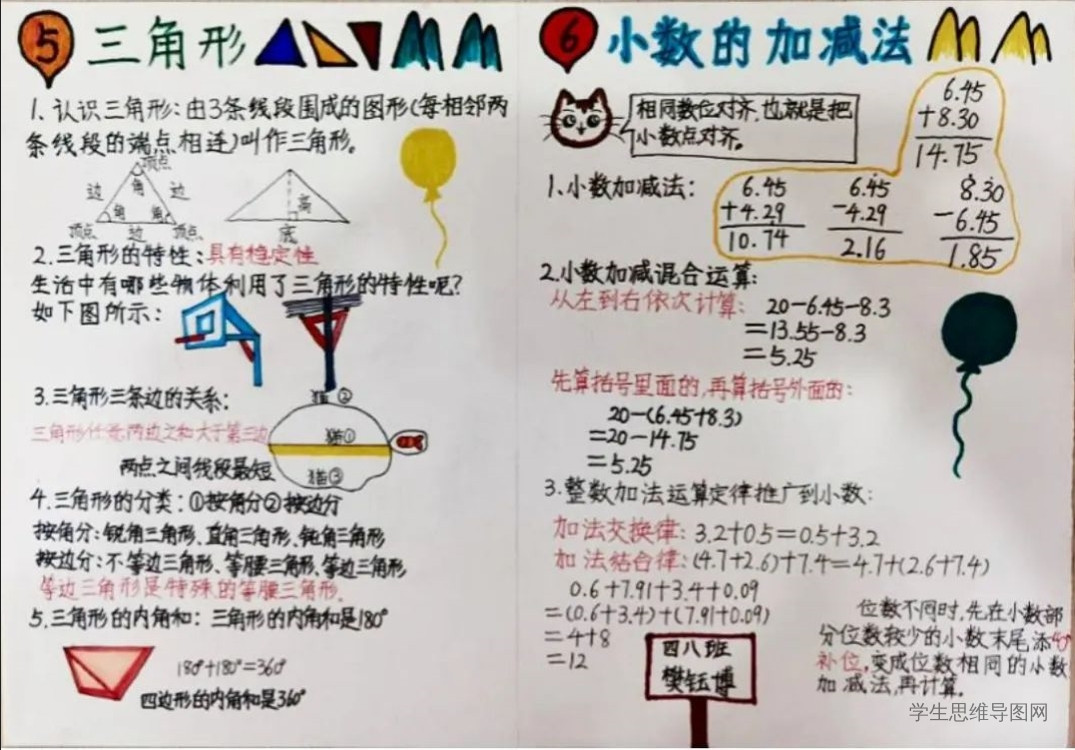 5 三角形
1. 认识三角形：由3条线段围成的图形(每相邻两
条线段的端点相连)叫作三角形。
顶点
边 角 边
角 角
顶点 边 顶点
高
底
2.三角形的特性：具有稳定性
生活中有哪些物体利用了三角形的特性呢?
如下图所示：
3.三角形三条边的关系：
三角形任意两边之和大于第三边
两点之间线段最短
猫②
猫①
猫③
4.三角形的分类：①按角分②按边分
按角分：锐角三角形、直角三角形、钝角三角形
按边分：不等边三角形、等腰三角形、等边三角形
等边三角形是特殊的等腰三角形.
5.三角形的内角和：三角形的内角和是180°
180°+180°=360°
四边形的内角和是360°
6 小数的加减法
相同数位对齐.也就是把
小数点对齐。
6.45
+8.30
14.75
1.小数加减法：
6.45
+4.29
10.74
6.45
-4.29
2.16
8.30
-6.45
1.85
2.小数加减混合运算：
从左到右依次计算：20-6.45-8.3
=13.55-8.3
=5.25
先算括号里面的,再算括号外面的：
20-(6.45+8.3)
=20-14.75
=5.25
3.整数加法运算定律推广到小数：
加法交换律：3.2+0.5=0.5+3.2
加法结合律：(4.7+2.6)+7.4=4.7+(2.6+7.4)
0.6+7.91+3.4+0.09
=(0.6+3.4)+(7.91+0.09)
=4+8
=12
四八班
樊钰博
位数不同时,先在小数部
分位数较少的小数末尾,添"0"
补位,变成位数相同的小数
加减法,再计算.
学生思维导图网